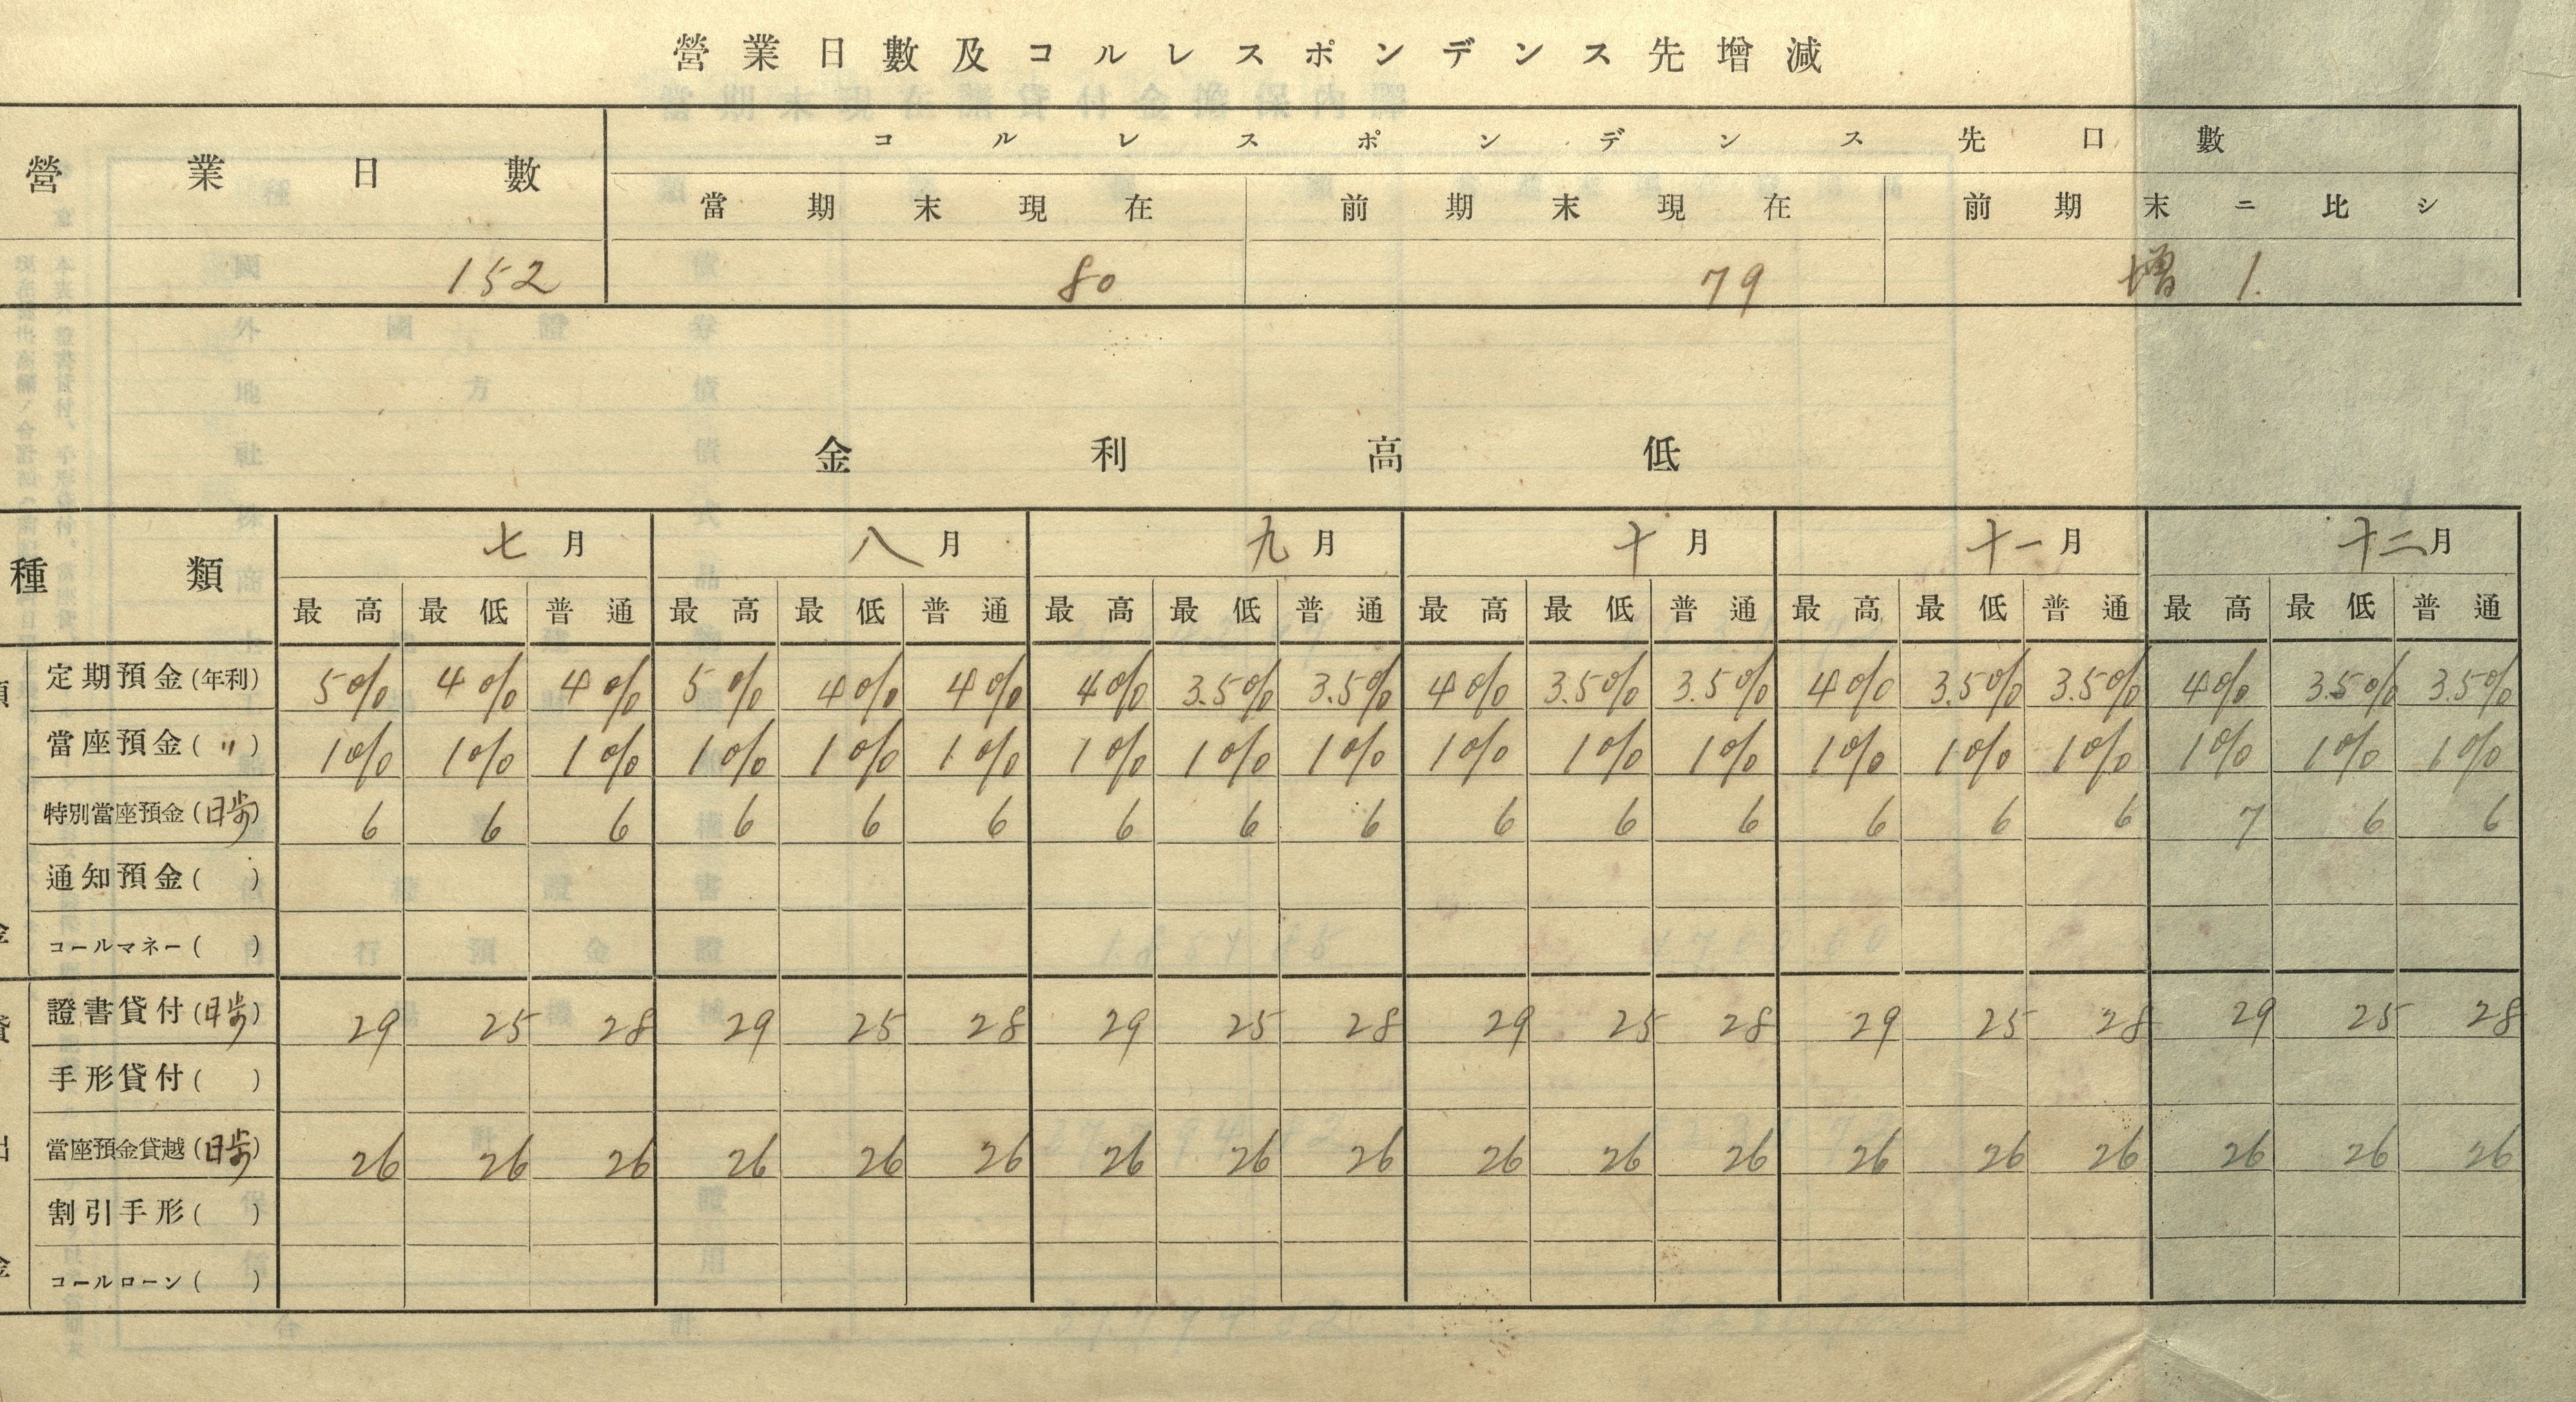 營業日數及コルレスポンデンス先增減
營業日數 コルレスポンデンス先口數
當期末現在 前期末現在 前期末ニ比シ
152 80 79 增 1.
金利高低
種類 七月 八月 九月 十月 十一月 十二月
最高 最低 普通 最高 最低 普通 最高 最低 普通 最高 最低 普通 最高 最低 普通 最高 最低 普通
定期預金(年利) 5% 4% 4% 5% 4% 4% 4% 3.5% 3.5% 4% 3.5% 3.5% 4% 3.5% 3.5% 4% 3.5% 3.5%
當座預金(〃) 1% 1% 1% 1% 1% 1% 1% 1% 1% 1% 1% 1% 1% 1% 1% 1% 1% 1%
特別當座預金(日歩) 6 6 6 6 6 6 6 6 6 6 6 6 6 6 6 7 6 6
通知預金( )
コールマネー( )
證書貸付(日歩) 29 25 28 29 25 28 29 25 28 29 25 28 29 25 28 29 25 28
手形貸付( )
當座預金貸越(日歩) 26 26 26 26 26 26 26 26 26 26 26 26 26 26 26 26 26 26
割引手形( )
コールローン( )